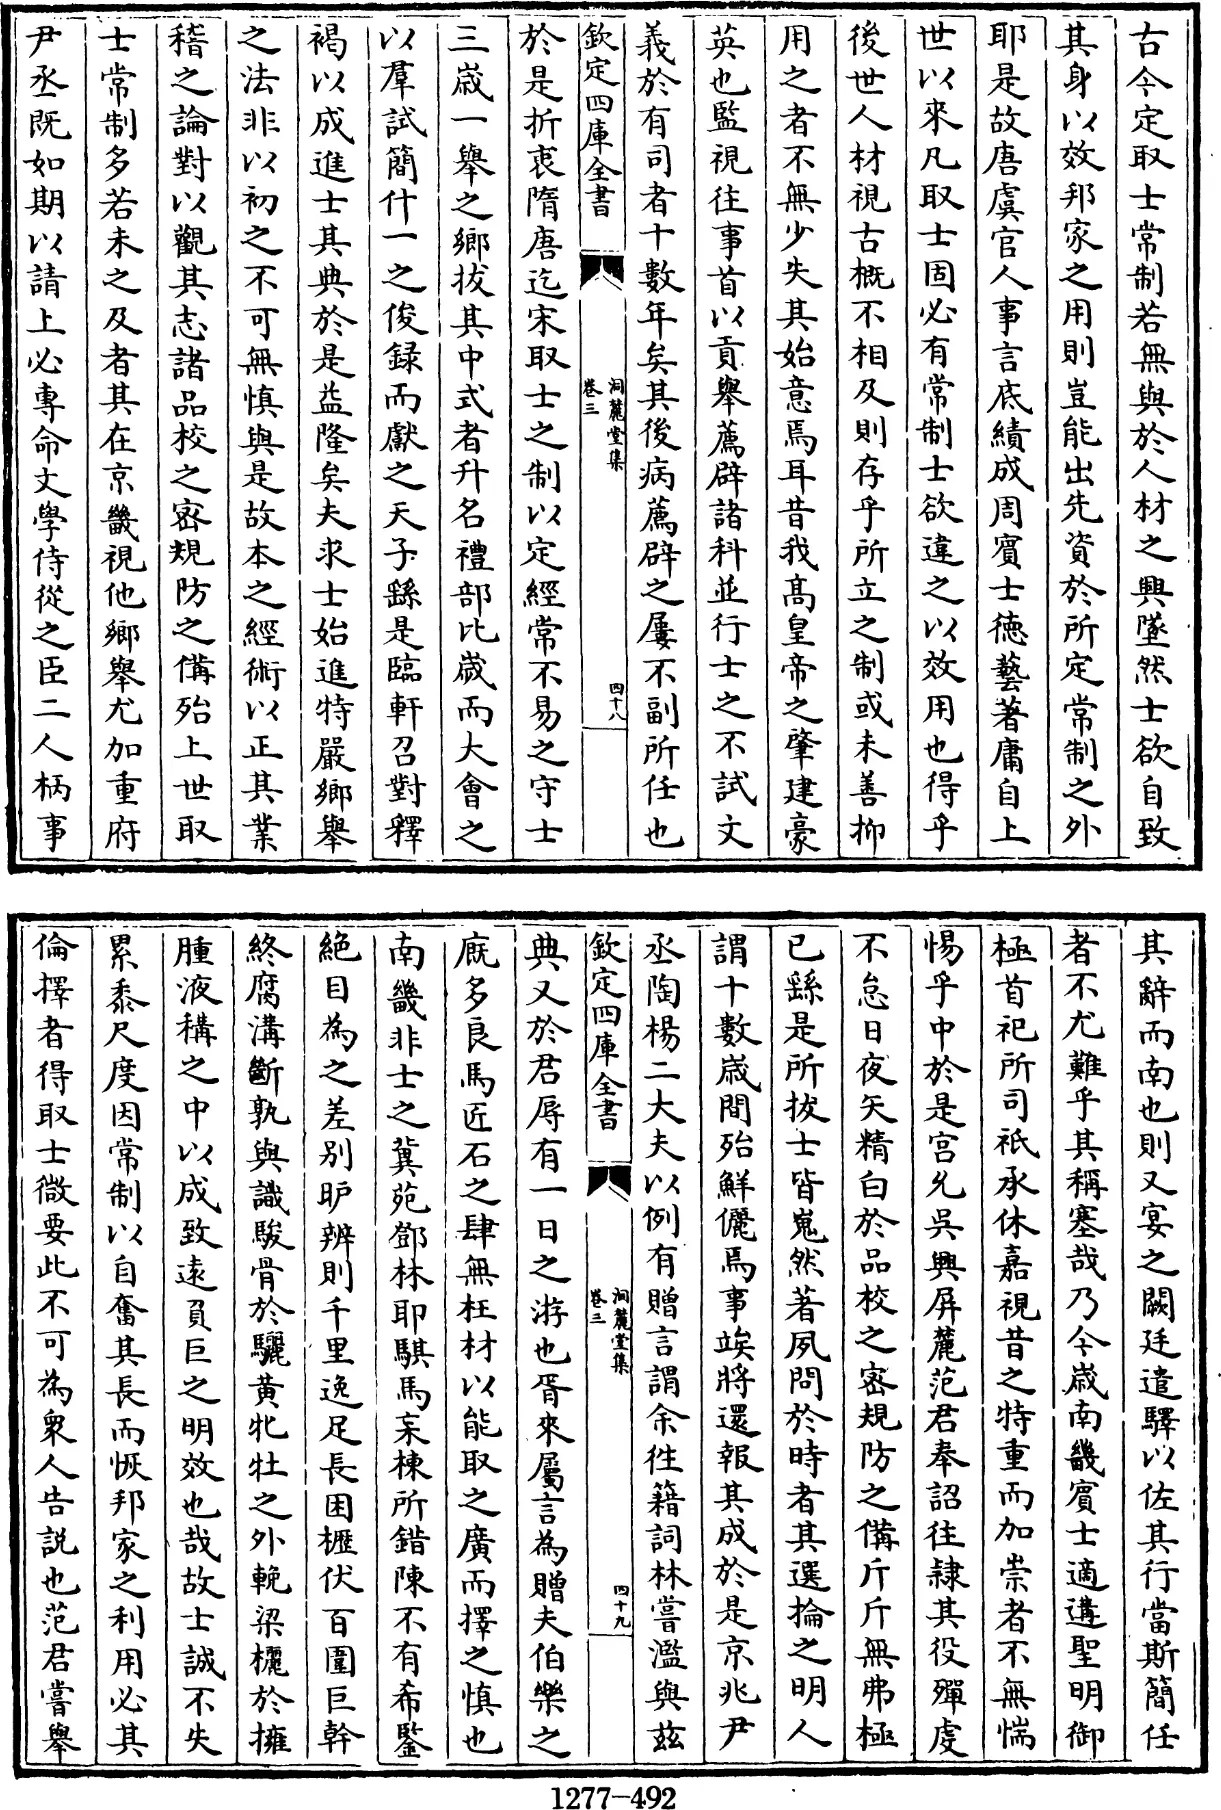 古今定取士常制若無與於人材之興墜然士欲自致
其身以效邦家之用則豈能出先資於所定常制之外
耶是故唐虞官人事言底績成周賓士德藝著庸自上
世以來凡取士固必有常制士欲違之以效用也得乎
後世人材視古概不相及則存乎所立之制或未善抑
用之者不無少失其始意焉耳昔我高皇帝之肇建豪
英也監視往事首以貢舉薦辟諸科並行士之不試文
義於有司者十數年矣其後病薦辟之屢不副所任也
欽定四庫全書
洞麓堂集
卷三
四十八
於是折衷隋唐迄宋取士之制以定經常不易之守士
三歲一舉之鄉拔其中式者升名禮部比歲而大會之
以羣試簡什一之俊録而獻之天子繇是臨軒召對釋
褐以成進士其典於是益隆矣夫求士始進特嚴鄉舉
之法非以初之不可無慎與是故本之經術以正其業
稽之論對以觀其志諸品校之密規防之備殆上世取
士常制多若未之及者其在京畿視他鄉舉尤加重府
尹丞既如期以請上必專命文學侍從之臣二人柄事
其辭而南也則又宴之闕廷遣驛以佐其行當斯簡任
者不尤難乎其稱塞哉乃今歲南畿賓士適遘聖明御
極首祀所司祇承休嘉視昔之特重而加崇者不無惴
惕乎中於是宫允吳興屏麓范君奉詔往隷其役殫虔
不怠日夜矢精白於品校之密規防之備斤斤無弗極
已繇是所拔士皆嵬然著夙問於時者其選掄之明人
謂十數歲間殆鮮儷焉事竢將還報其成於是京兆尹
丞陶楊二大夫以例有贈言謂余徃籍詞林嘗濫與兹
欽定四庫全書
洞麓堂集
卷三
四十九
典又於君辱有一日之游也胥來屬言為贈夫伯樂之
厩多良馬匠石之肆無枉材以能取之廣而擇之慎也
南畿非士之冀苑鄧林耶騏馬宲棟所錯陳不有希鑒
絶目為之差别眆辨則千里逸足長困櫪伏百圍巨幹
終腐溝斷孰與識駿骨於驪黄牝牡之外輓梁欐於擁
腫液構之中以成致遠負巨之明效也哉故士誠不失
累黍尺度因常制以自奮其長而恢邦家之利用必其
倫擇者得取士微要此不可為衆人告説也范君嘗舉
1277-492